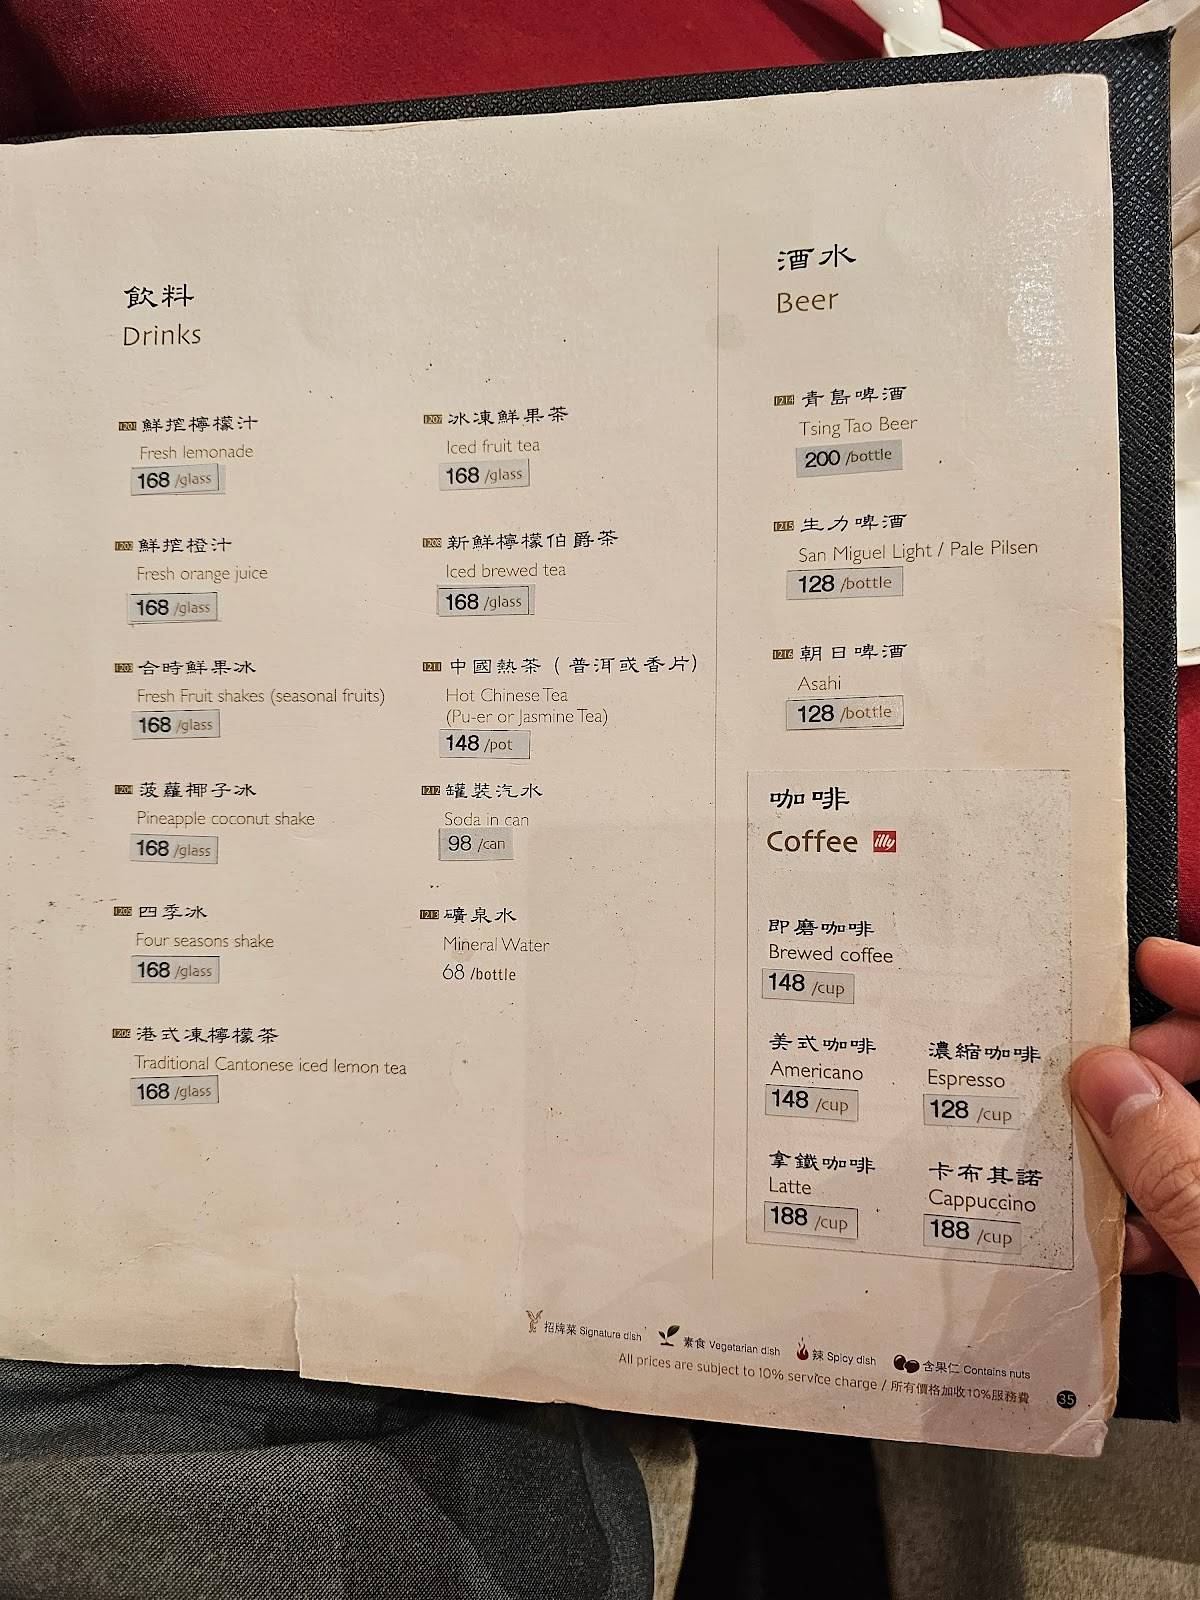 飲料
Drinks
1201 鮮搾檸檬汁
Fresh lemonade
168 /glass
1202 鮮搾橙汁
Fresh orange juice
168 /glass
1203 合時鮮果冰
Fresh Fruit shakes (seasonal fruits)
168 /glass
1204 菠蘿椰子冰
Pineapple coconut shake
168 /glass
1205 四季冰
Four seasons shake
168 /glass
1206 港式凍檸檬茶
Traditional Cantonese iced lemon tea
168 /glass
1207 冰凍鮮果茶
Iced fruit tea
168 /glass
1208 新鮮檸檬伯爵茶
Iced brewed tea
168 /glass
1211 中國熱茶 ( 普洱或香片)
Hot Chinese Tea
(Pu-er or Jasmine Tea)
148 /pot
1212 罐裝汽水
Soda in can
98 /can
1213 礦泉水
Mineral Water
68 /bottle
酒水
Beer
1214 青島啤酒
Tsing Tao Beer
200 /bottle
1215 生力啤酒
San Miguel Light / Pale Pilsen
128 /bottle
1216 朝日啤酒
Asahi
128 /bottle
咖啡
Coffee illy
即磨咖啡
Brewed coffee
148 /cup
美式咖啡
Americano
148 /cup
濃縮咖啡
Espresso
128 /cup
拿鐵咖啡
Latte
188 /cup
卡布其諾
Cappuccino
188 /cup
招牌菜 Signature dish 素食 Vegetarian dish 辣 Spicy dish 含果仁 Contains nuts
All prices are subject to 10% service charge / 所有價格加收10%服務費
35